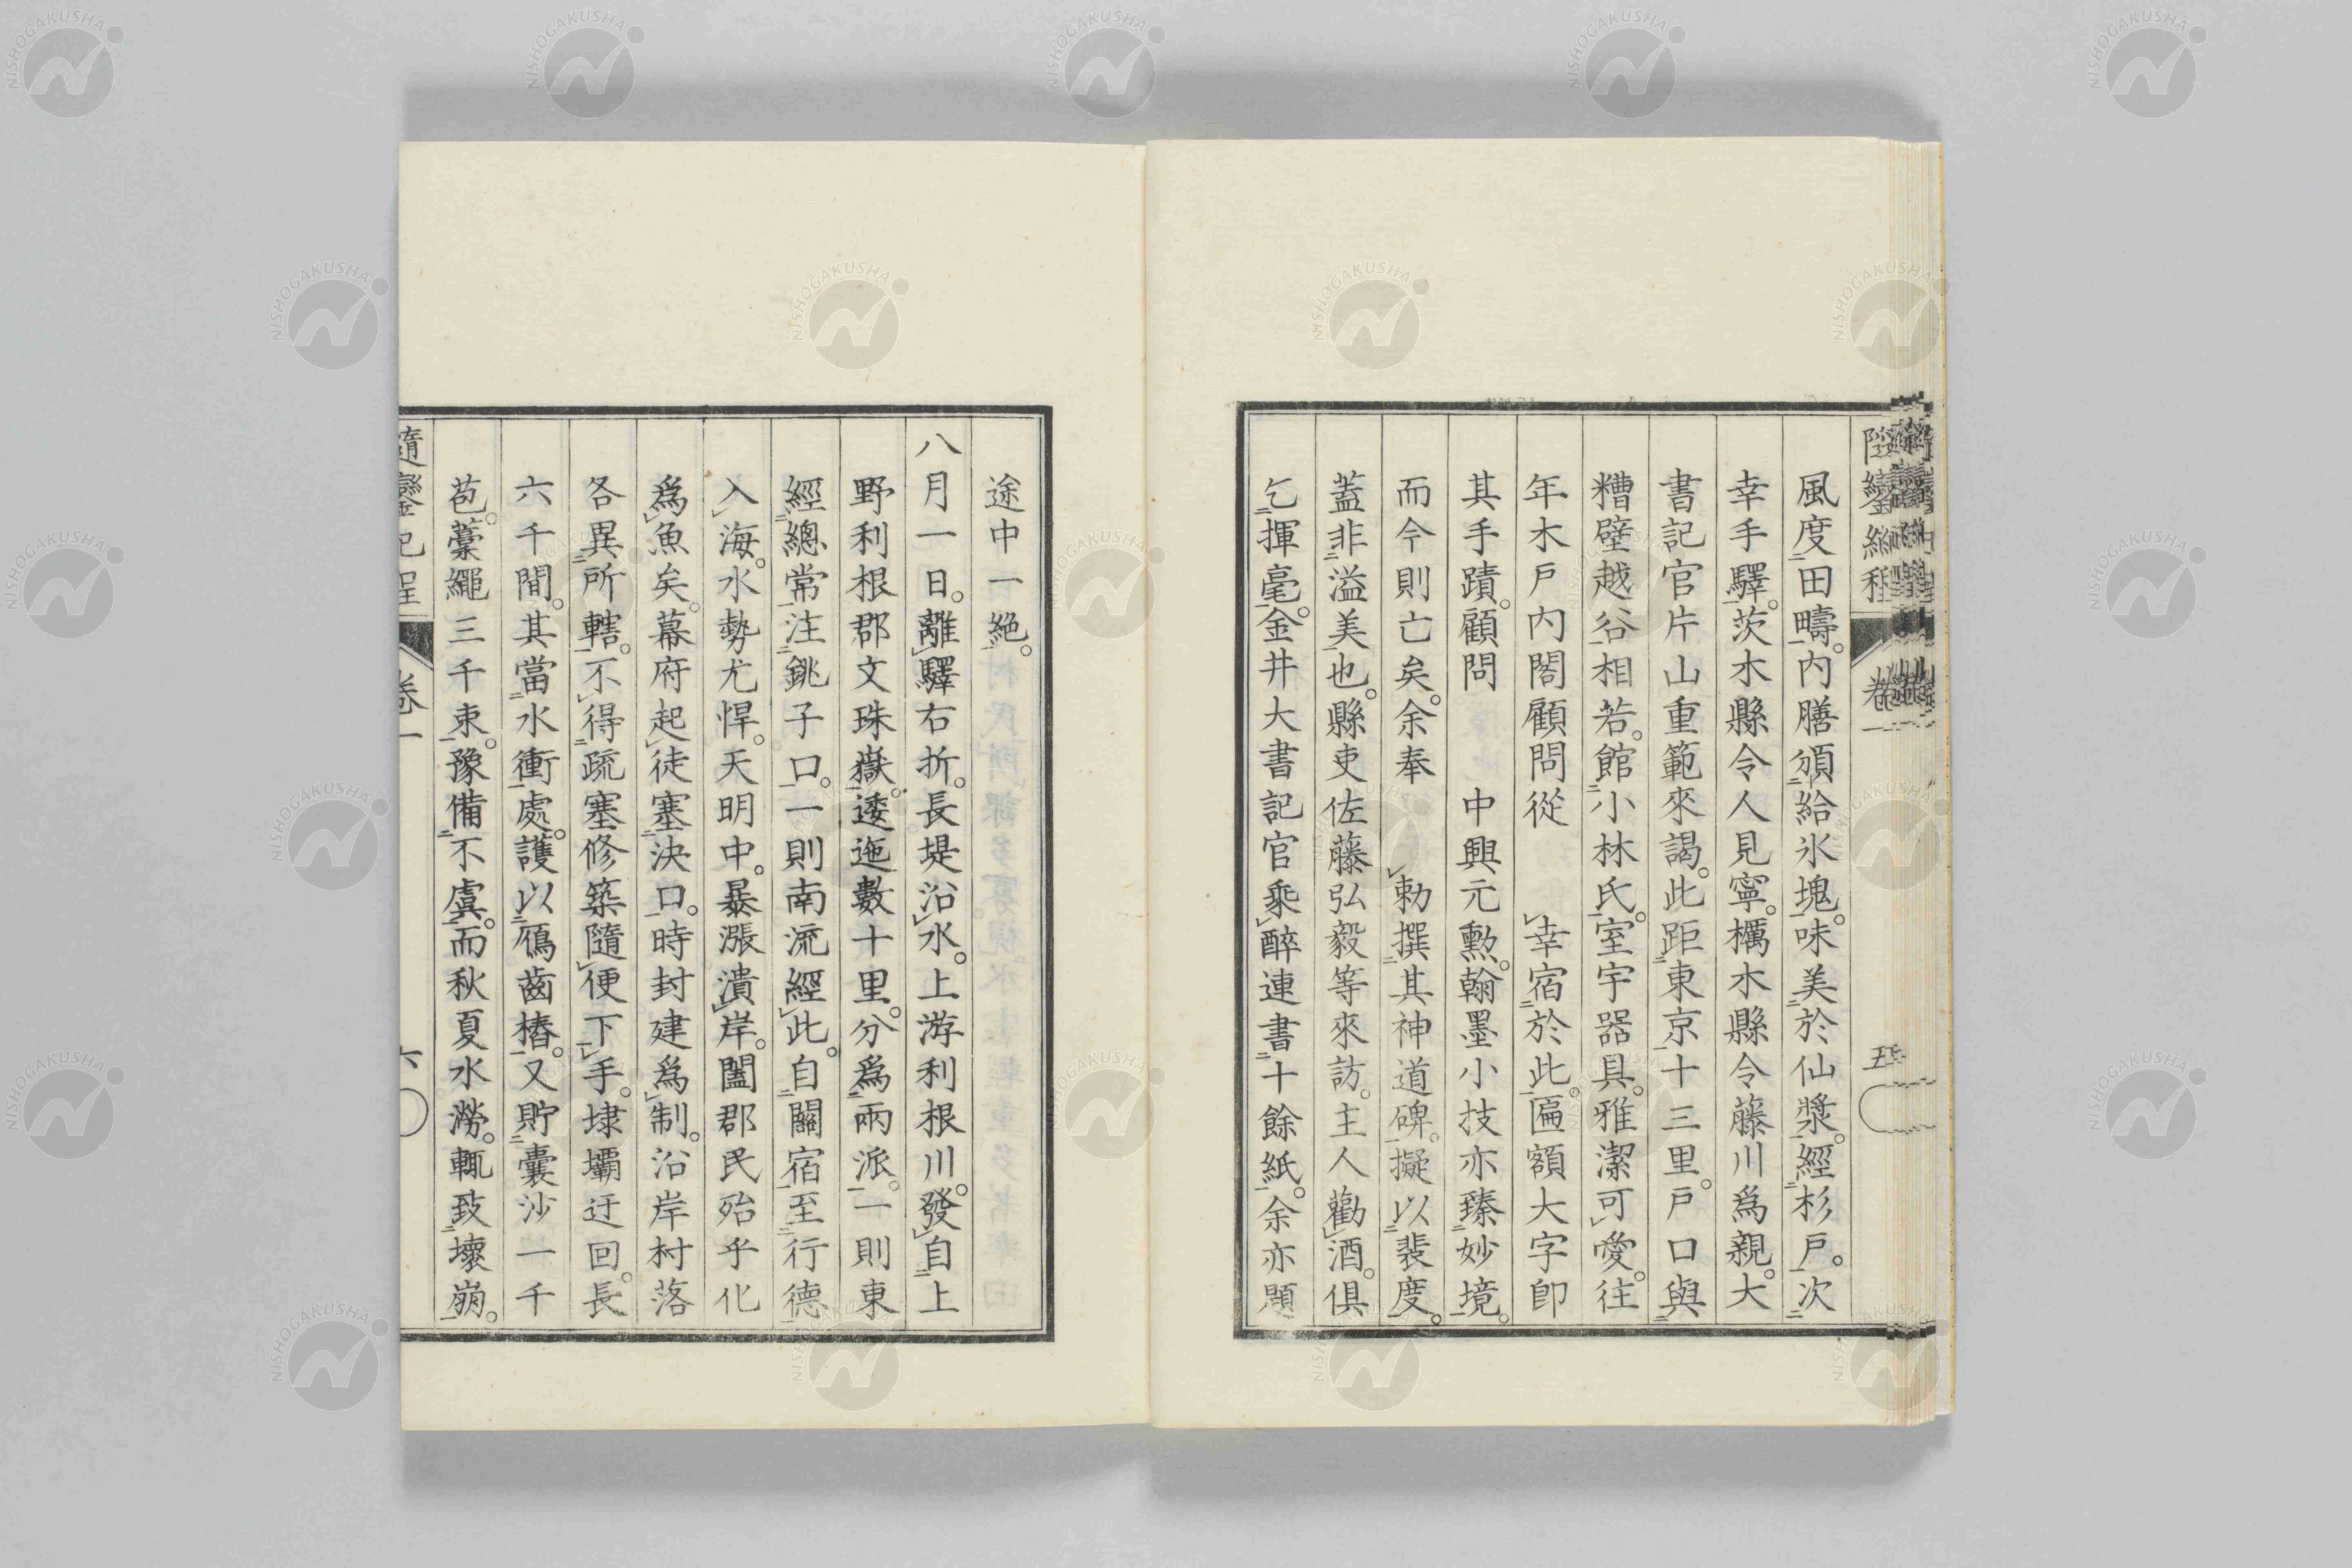 隨鑾紀程
卷一
五
風度田疇。内膳頒給氷塊。味美於仙漿。經杉戸。次
幸手驛。茨木縣令人見寧。櫔木縣令藤川爲親。大
書記官片山重範來謁。此距東京十三里。戸口與
糟壁越谷相若。館小林氏。室宇器具。雅潔可愛。往
年木戸内閣顧問從　幸宿於此。匾額大字卽
其手蹟。顧問　中興元勲。翰墨小技亦臻妙境。
而今則亡矣。余奉　勅撰其神道碑。擬以裴度。
蓋非溢美也。縣吏佐藤弘毅等來訪。主人勸酒。俱
乞揮毫。金井大書記官乘醉連書十餘紙。余亦題
途中一絕。
八月一日。離驛右折。長堤沿水。上游利根川。發自上
野利根郡文珠嶽。逶迤數十里。分爲兩派。一則東
經總常注銚子口。一則南流經此。自關宿至行德
入海。水勢尤悍。天明中。暴漲潰岸。闔郡民殆乎化
爲魚矣。幕府起徒塞決口。時封建爲制。沿岸村落
各異所轄。不得疏塞修築隨便下手。埭壩迂回。長
六千間。其當水衝處。護以鴈齒樁。又貯囊沙一千
苞。藁繩三千束。豫備不虞。而秋夏水澇。輒致壞崩。
隨鑾紀程
卷一
六